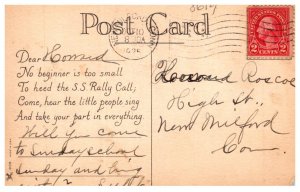 Post Card
Dear Howard
No beginner is too small
To heed the S.S. Rally Call;
Come, hear the little people sing
And take your part in everything.
Will you come
to Sunday school
Sunday and bring
Howard Roscoe
High St.,
New Milford
Conn.